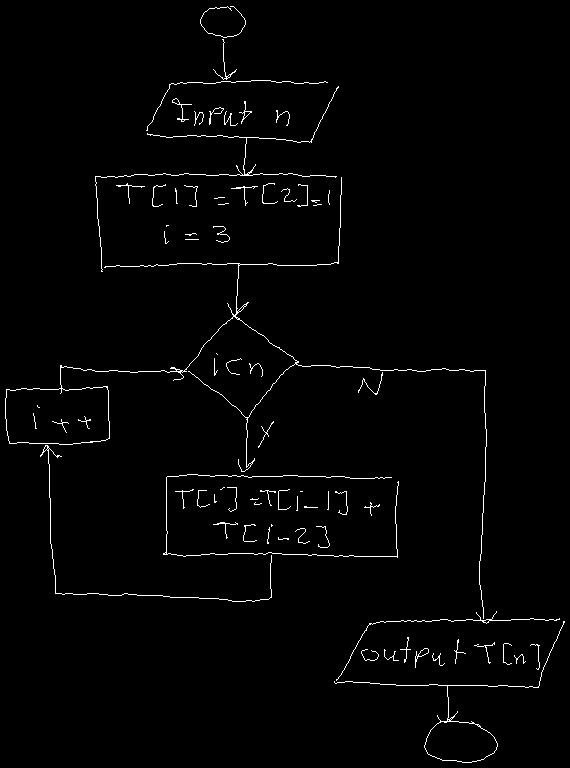 Input n
T[1]=T[2]=1
i = 3
i<n
N
Y
i++
T[i]=T[i-1] +
T[i-2]
output T[n]